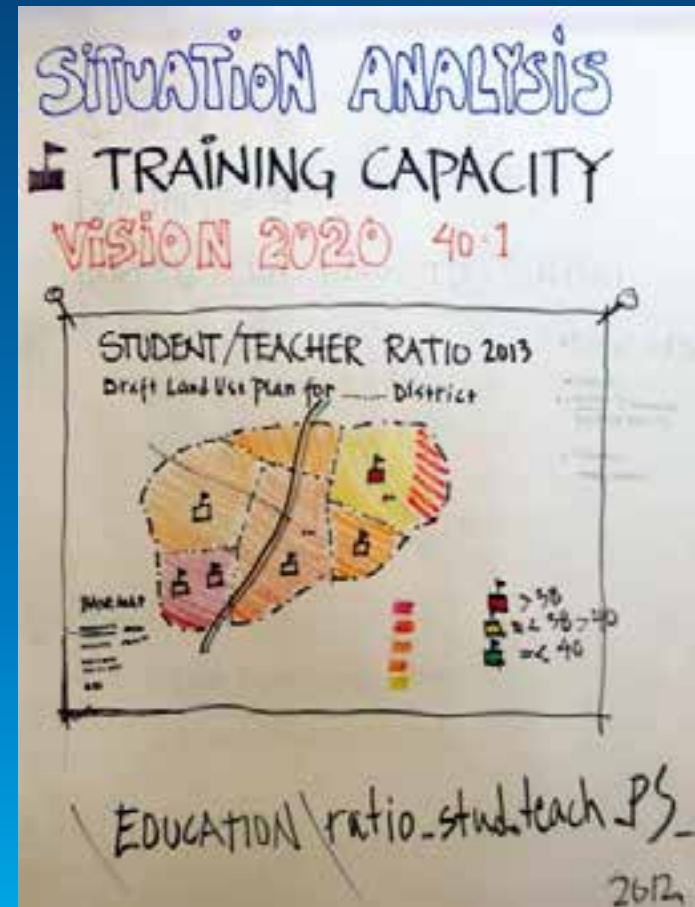 SITUATION ANALYSIS
TRAINING CAPACITY
VISION 2020 40·1
STUDENT/TEACHER RATIO 2013
Draft Land Use Plan for ...... District
BASE MAP
> 58
=< 58 > 40
=< 40
\EDUCATION\ratio_stud.teach_PS_
2012